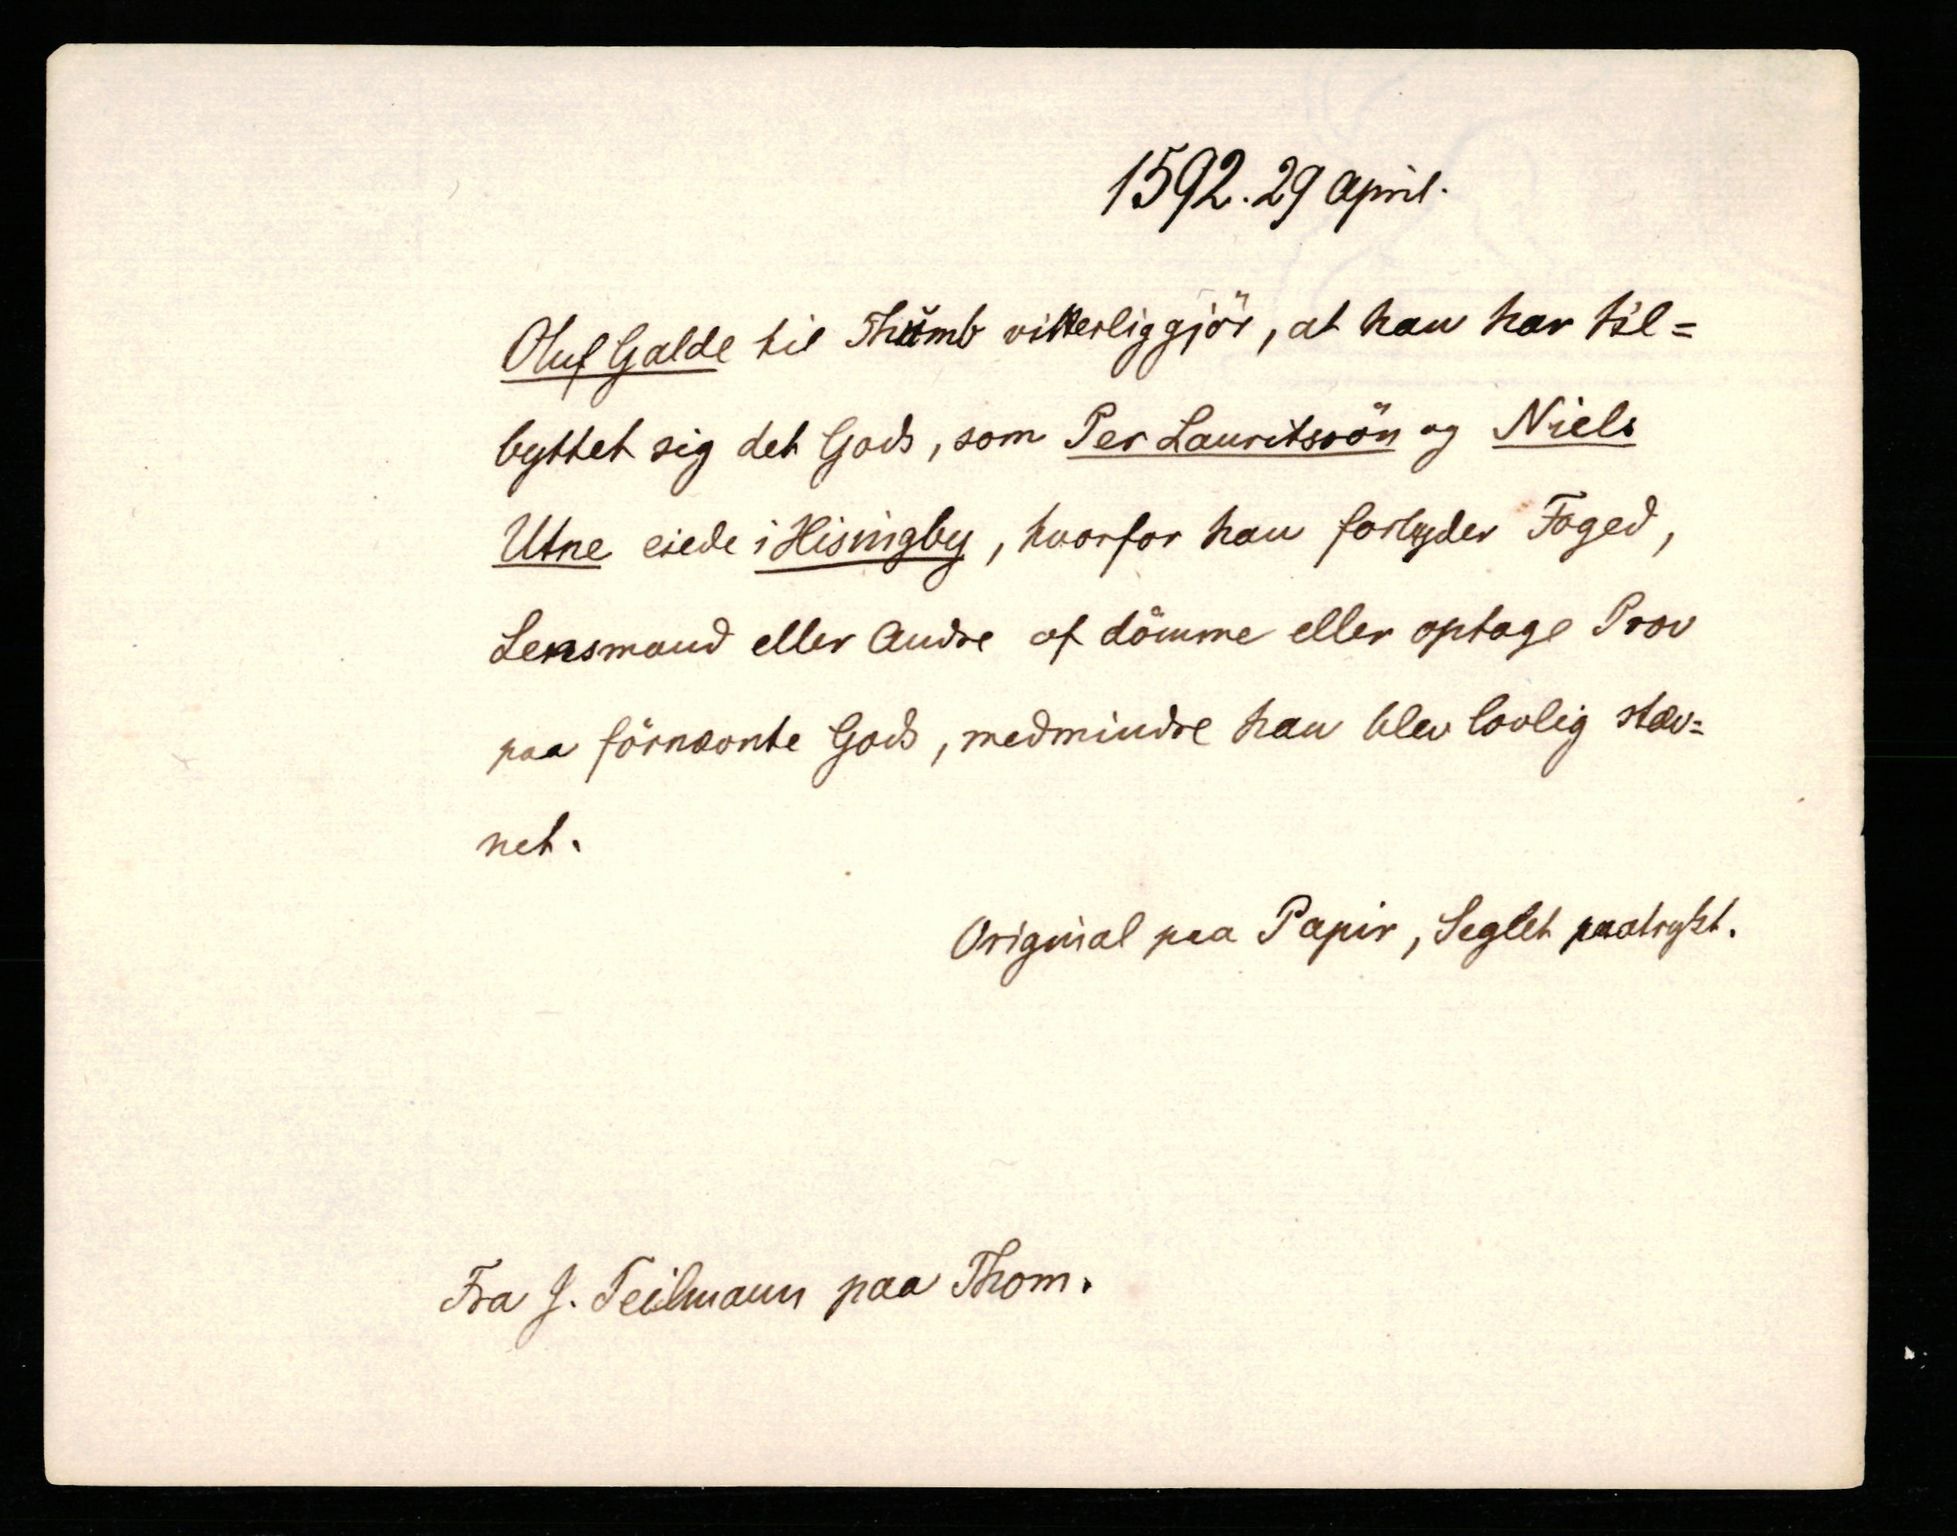 1592. 29 April.
Oluf Galde til Thŭmb vitterliggjör, at han har til=
byttet sig det Gods, som Per Lauritssön og Niels
Utne eiede i Hisingby, hvorfor han forbyder Foged,
Lensmand eller Andre at dömme eller optage Prov
paa förnævnte Gods, medmindre han blev lovlig stæv=
net.
Original paa Papir, Seglet paatrykt.
Fra J. Teilmann paa Thom.